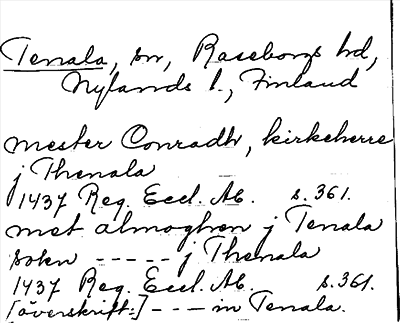 Tenala, sn, Raseborgs hd,
Nylands l., Finland
mester Conradh, kirkeherre
j Thenala
1437 Reg. Eccl. Ab. s. 361.
met almoghen j Tenala
sokn ----- j Thenala
1437 Reg. Eccl. Ab. s. 361.
[överskrift:] --- in Tenala.